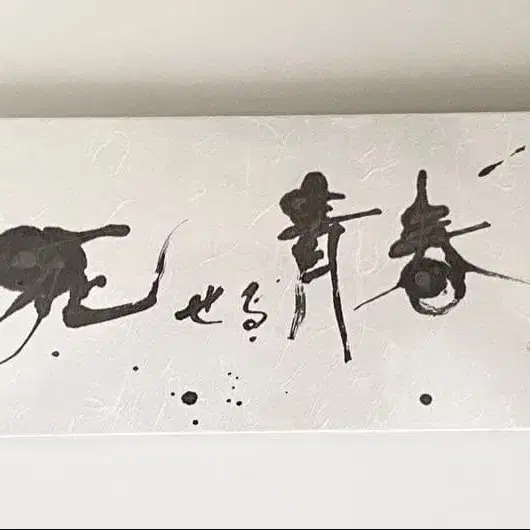 死せる青春